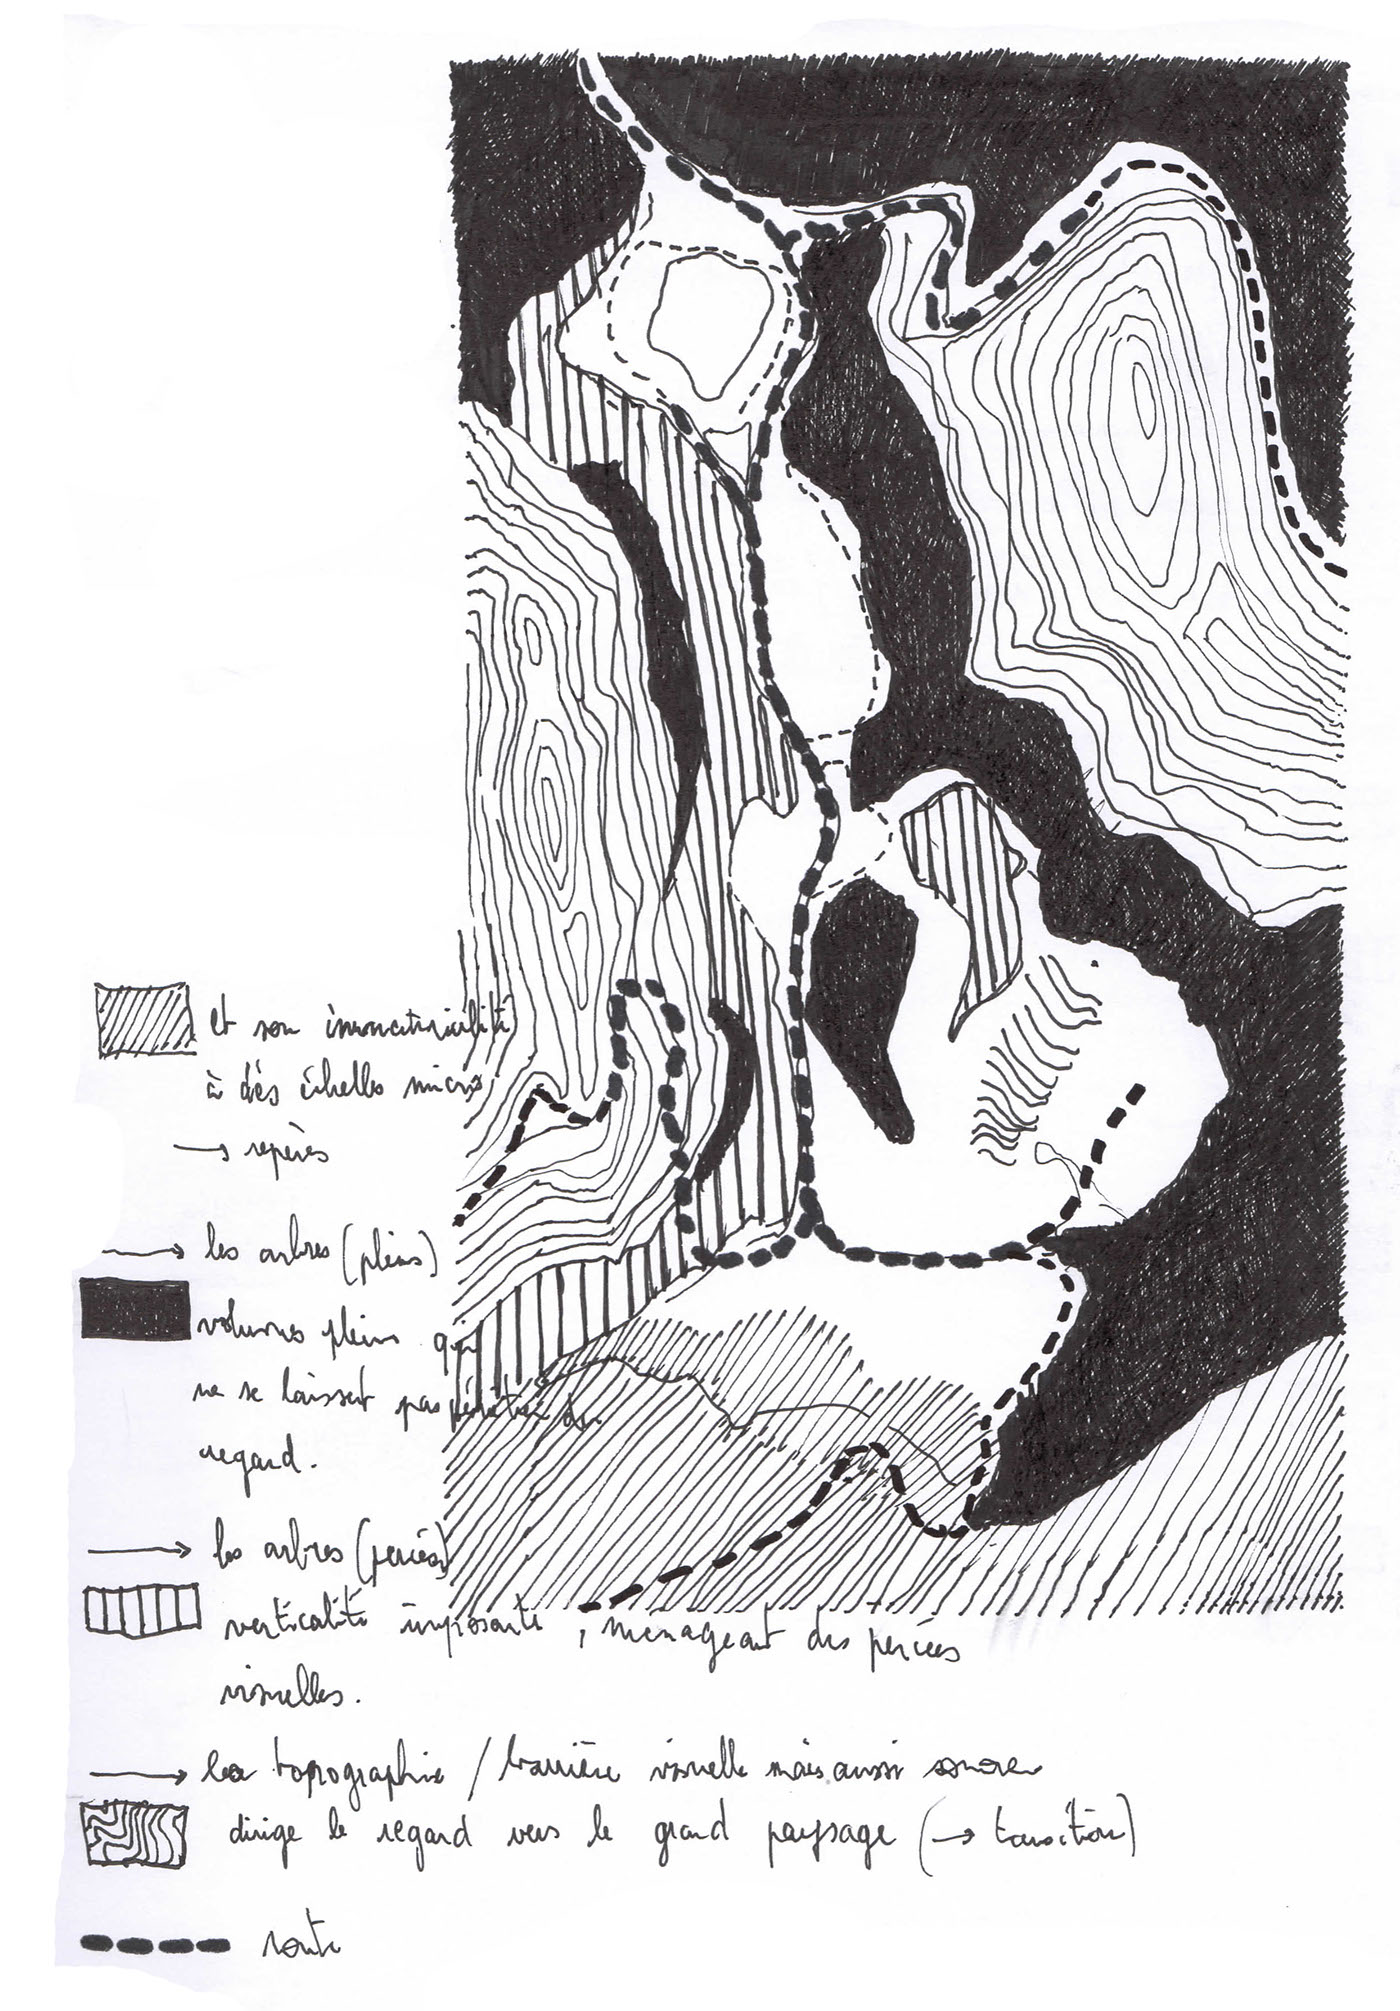 et son immatérialité
à des échelles micro
→ repères
→ les arbres (pleins)
volumes pleins qui
ne se laissent pas pénétrer du
regard.
→ les arbres (percés)
verticalité imposante, ménageant des percées
visuelles.
→ la topographie / barrière visuelle mais aussi sonore
dirige le regard vers le grand paysage (→ transition)
route